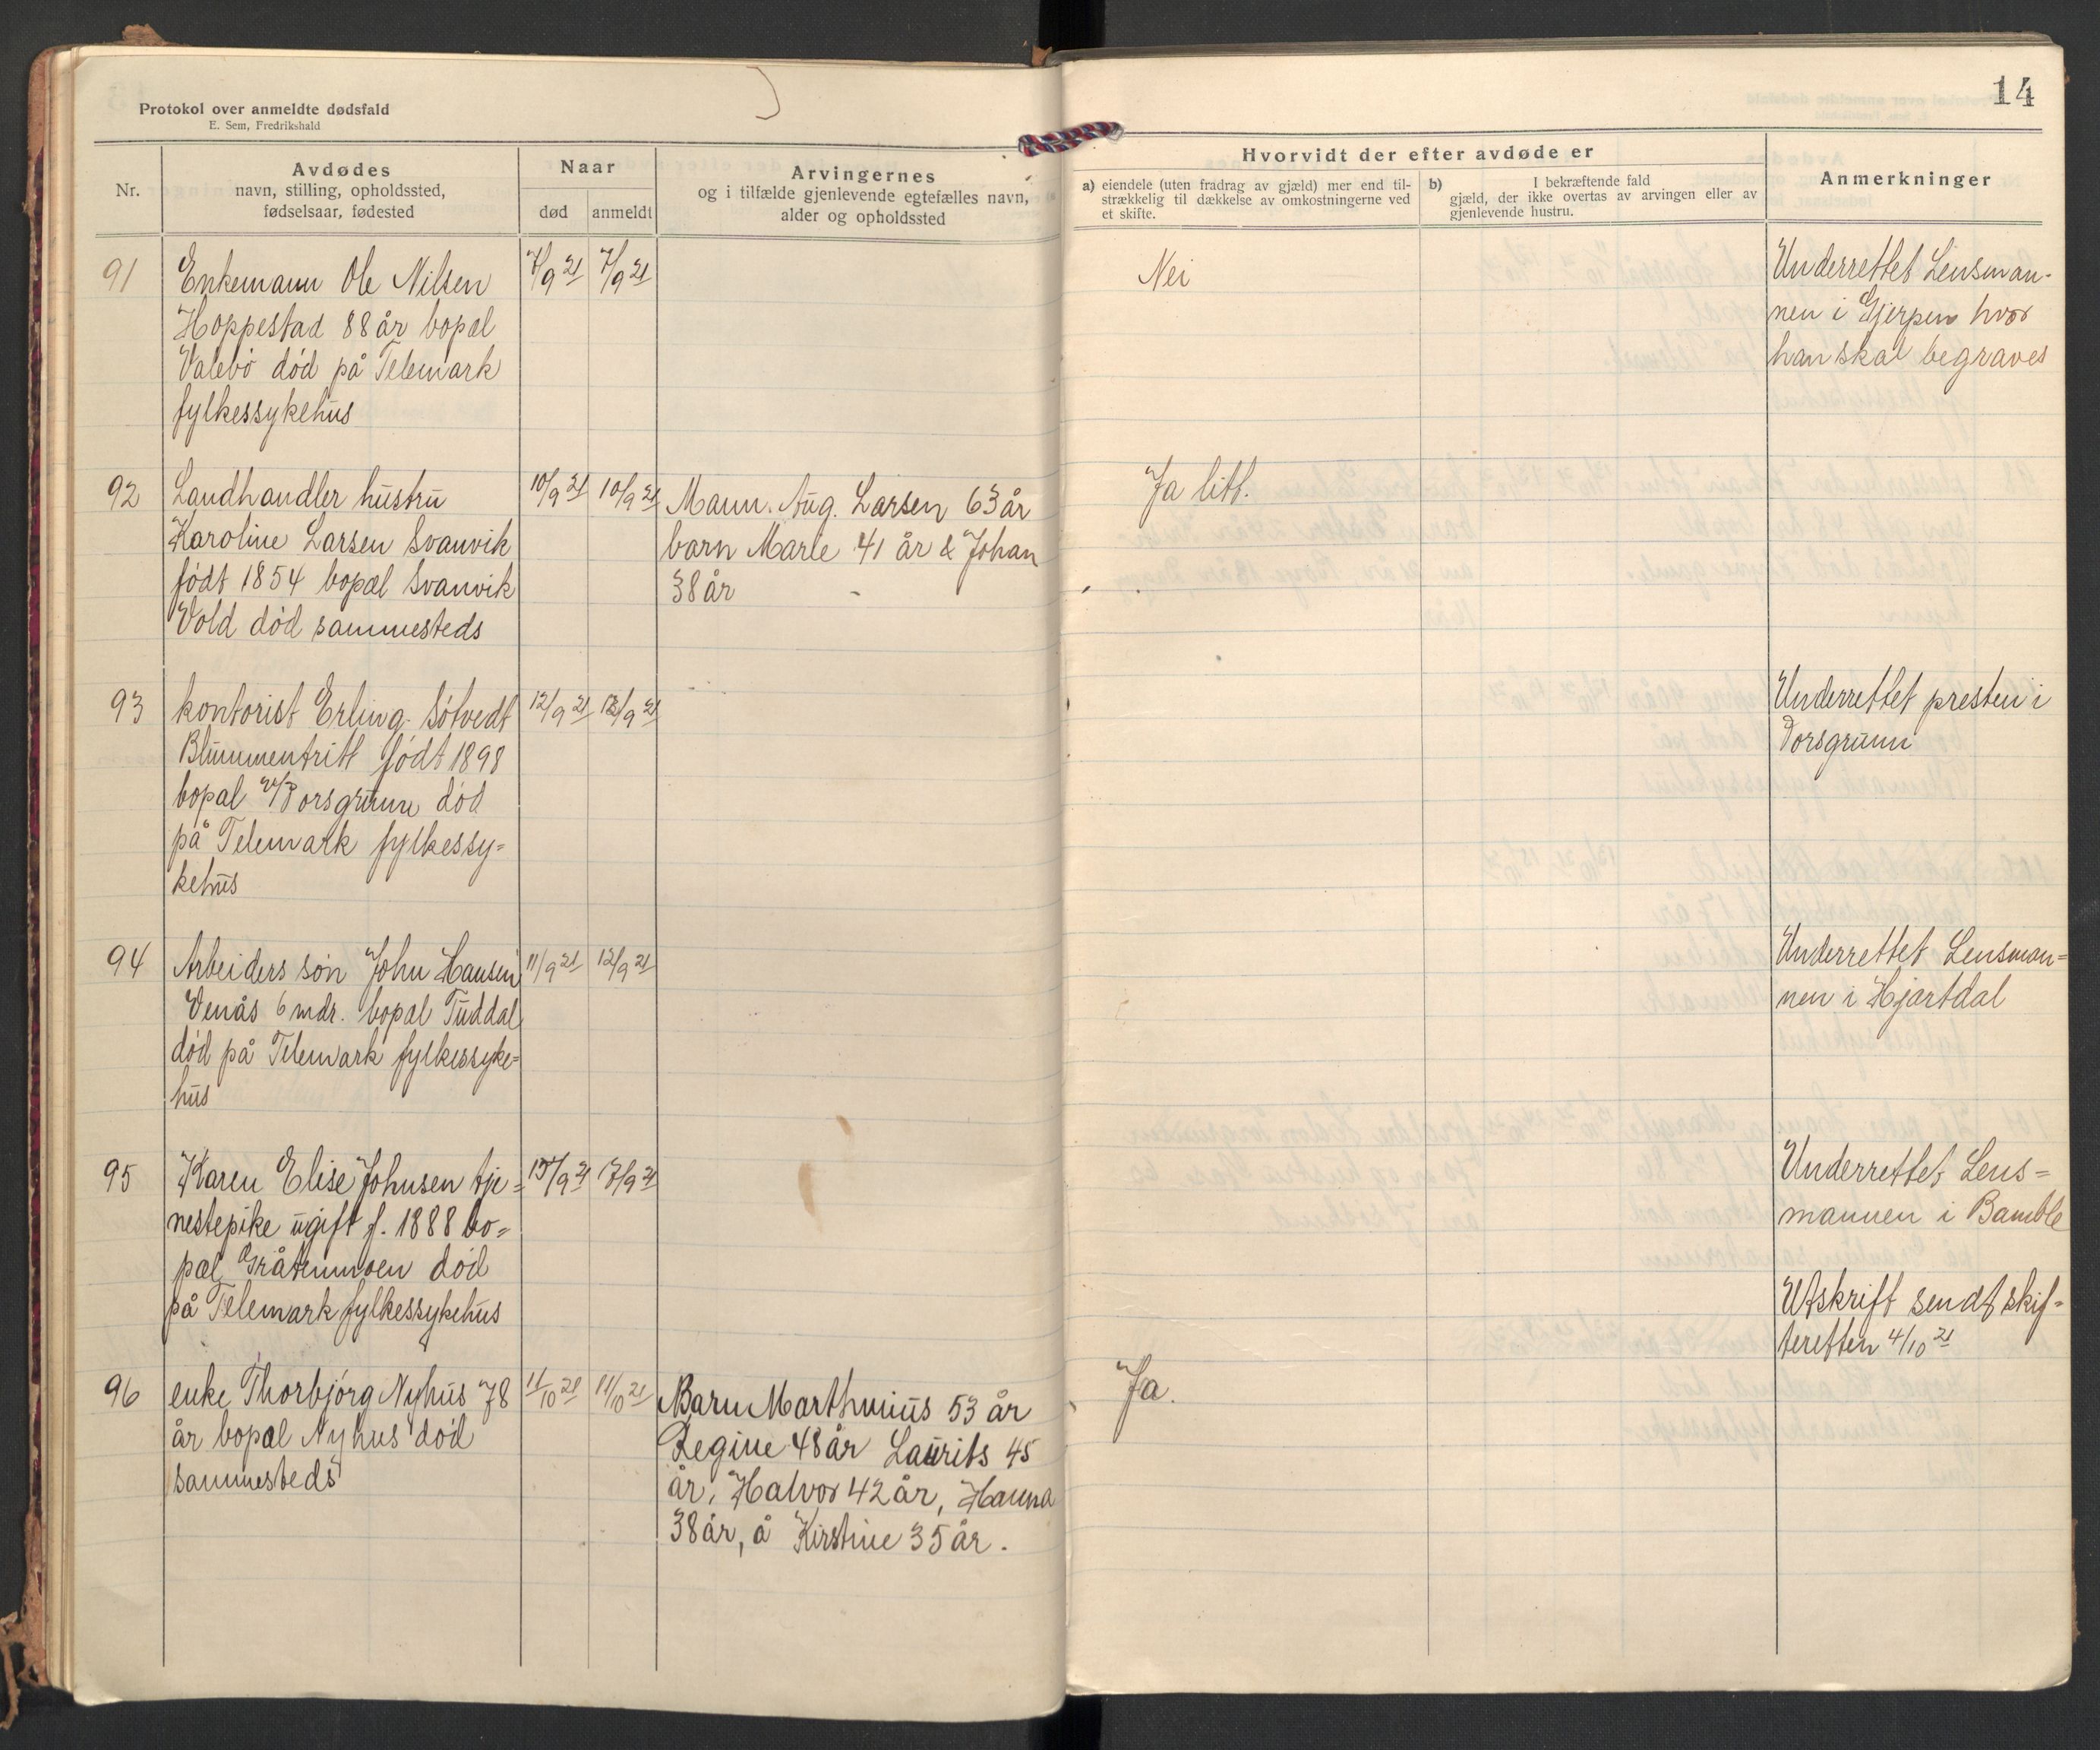 Protokol over anmeldte dødsfald
E. Sem, Fredrikshald
14
Nr.
Avdødes
navn, stilling, opholdssted,
fødselsaar, fødested
Naar
død
anmeldt
Arvingernes
og i tilfælde gjenlevende egtefælles navn,
alder og opholdssted
Hvorvidt der efter avdøde er
a) eiendele (uten fradrag av gjæld) mer end til-
strækkelig til dækkelse av omkostningerne ved
et skifte.
b) I bekræftende fald
gjæld, der ikke overtas av arvingen eller av
gjenlevende hustru.
Anmerkninger
91
Enkemann Ole Nilsen
Hoppestad 88 år bopæl
Valebø død på Telemark
fylkessykehus
7/9 21
7/9 21
Nei
Underrettet Lensman-
nen i Gjerpen hvor
han skal begraves
92
Landhandler hustru
Karoline Larsen Svanvik
født 1854 bopæl Svanvik
Vold død sammesteds
10/9 21
10/9 21
Mann. Aug. Larsen 63 år
barn Marie 41 år & Johan
38 år
Ja litt.
93
kontorist Erling Søtvedt
Blummentritt født 1898
bopal v/Porsgrunn død
på Telemark fylkessy=
kehus
12/9 21
/9 21
Underrettet presten i
Porsgrunn
94
Arbeiders søn John Hansen
Venås 6 mdr. bopal Tuddal
død på Telemark fylkessyke=
hus
11/9 21
12/9 21
Underrettet Lensman=
nen i Hjartdal
95
Karen Elise Johnsen tje=
nestepike ugift f. 1888 bo=
pæl død
på Telemark fylkessykehus
15/9 21
17/9 21
Underrettet Lens=
mannen i Bamble
96
enke Thorbjørg Nyhus 78
år bopal Nyhus død
sammesteds
1/10 21
1/10 21
Barn Marthinius 53 år
Regine 48 år Laurits 45
år, Halvor 42 år, Hanna
38 år, å Kirstine 35 år.
Ja.
Utskrift sendt skif=
teretten 4/10 21